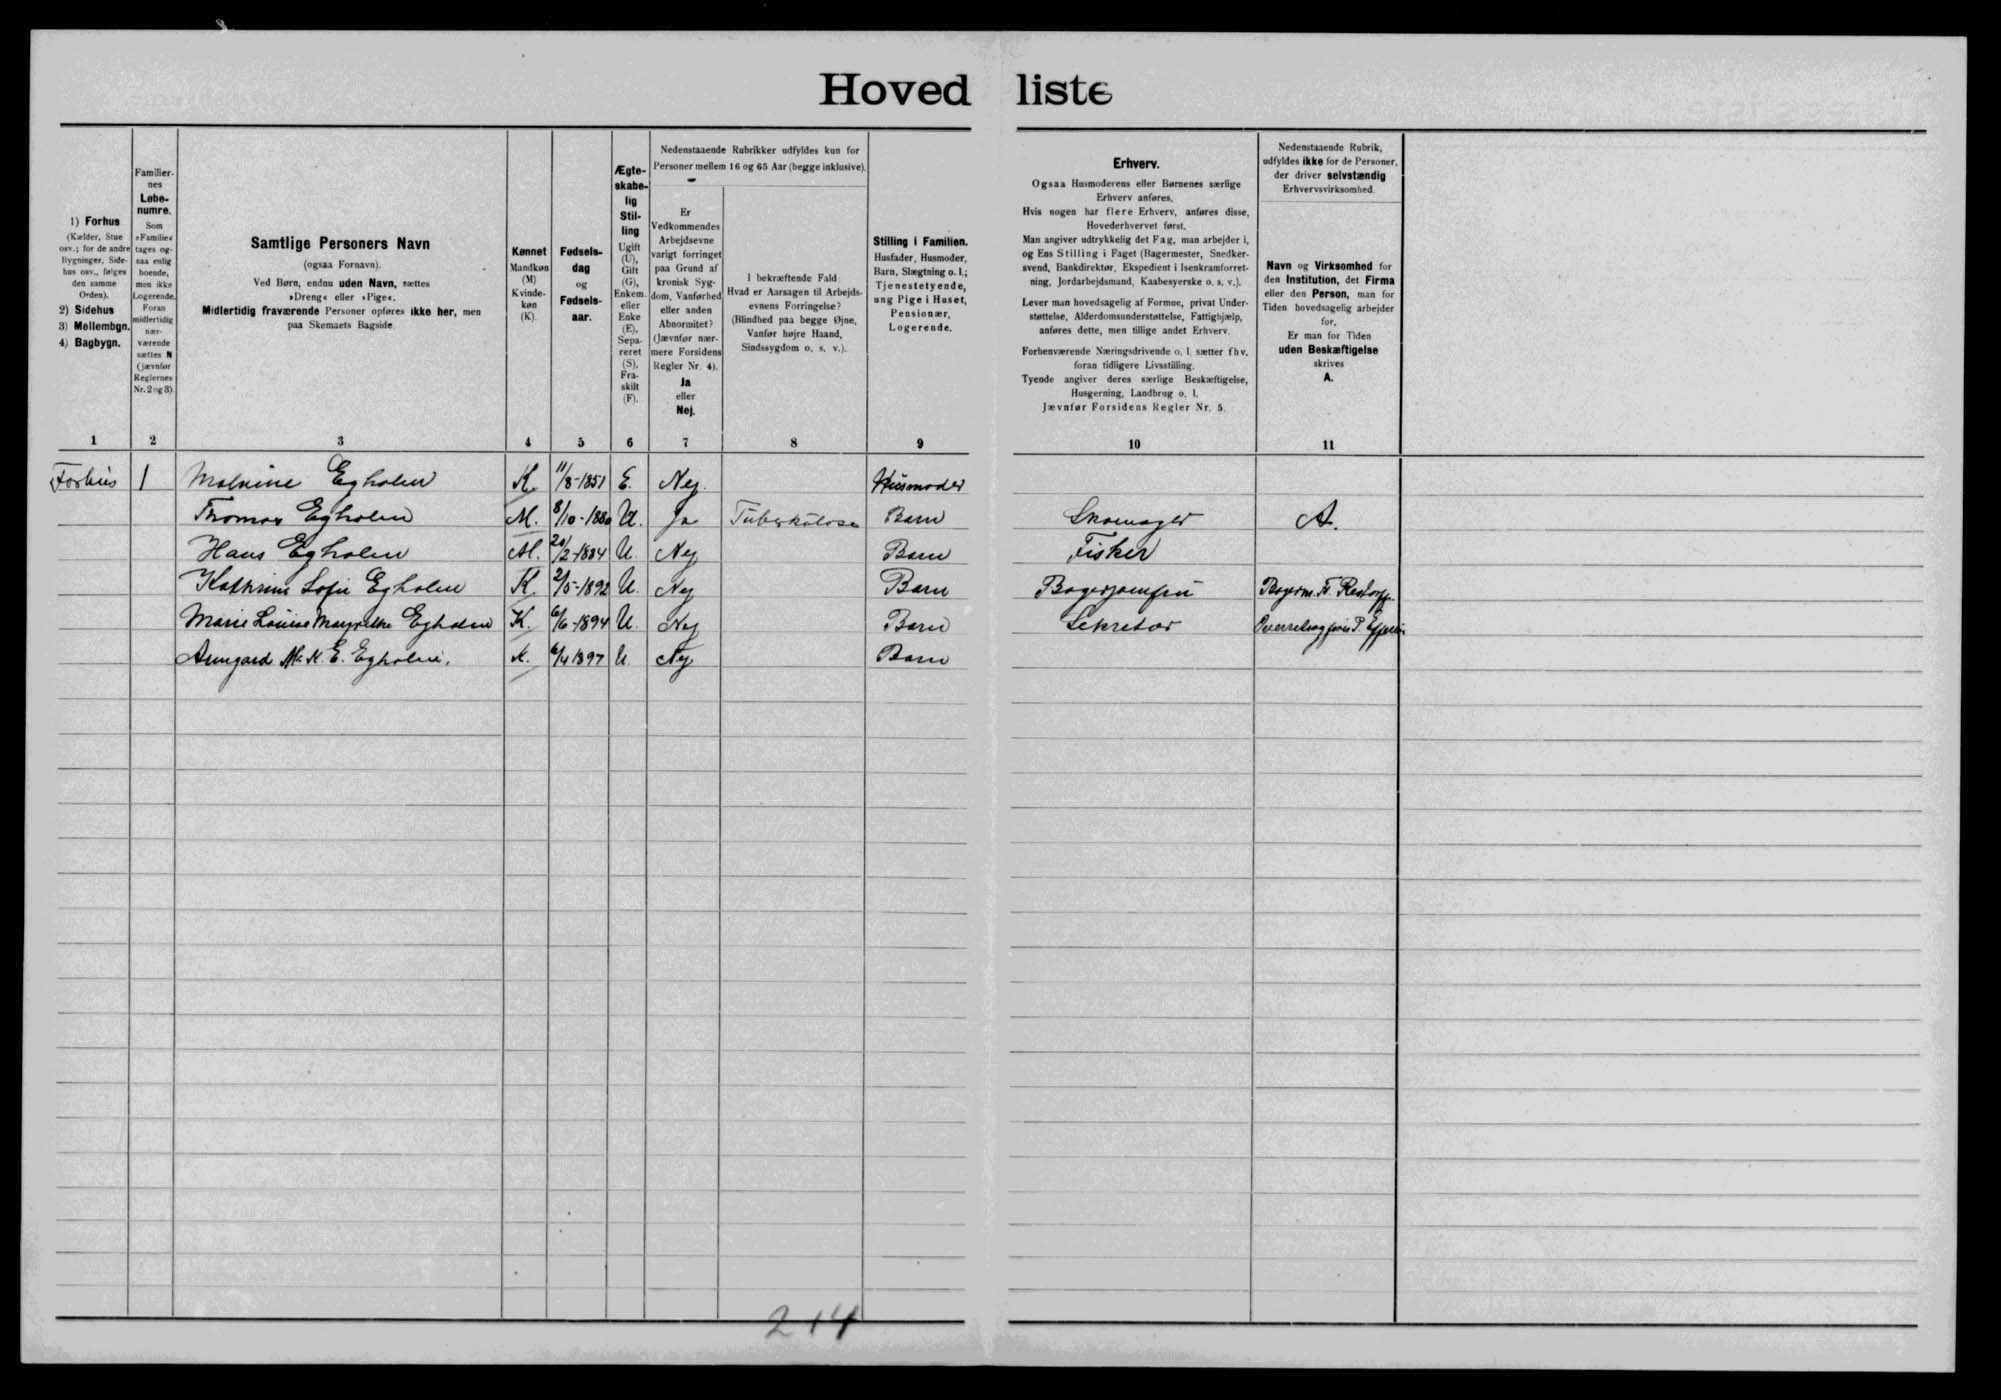 Hovedliste
1) Forhus
(Kælder, Stue
osv.; for de andre
Bygninger, Side-
hus osv., følges
den samme
Orden).
2) Sidehus
3) Mellembgn.
4) Bagbygn.
Familier-
nes
Løbe-
numre.
Som
»Familie«
tages og-
saa enlig
boende,
men ikke
Logerende.
Foran
midlertidig
nær-
værende
sættes N
(jævnfør
Reglernes
Nr. 2 og 3)
Samtlige Personers Navn
(ogsaa Fornavn).
Ved Børn, endnu uden Navn, sættes
»Dreng« eller »Pige«.
Midlertidig fraværende Personer opføres ikke her, men
paa Skemaets Bagside.
Kønnet
Mandkøn
(M)
Kvinde-
køn
(K).
Fødsels-
dag
og
Fødsels-
aar.
Ægte-
skabe-
lig
Stil-
ling
Ugift
(U),
Gift
(G),
Enkem.
eller
Enke
(E),
Sepa-
reret
(S),
Fra-
skilt
(F).
Nedenstaaende Rubrikker udfyldes kun for
Personer mellem 16 og 65 Aar (begge inklusive).
Er
Vedkommendes
Arbejdsevne
varigt forringet
paa Grund af
kronisk Syg-
dom, Vanførhed
eller anden
Abnormitet?
(Jævnfør nær-
mere Forsidens
Regler Nr. 4).
Ja
eller
Nej.
I bekræftende Fald
Hvad er Aarsagen til Arbejds-
evnens Forringelse?
(Blindhed paa begge Øjne,
Vanfør højre Haand,
Sindssygdom o. s. v.).
Stilling i Familien.
Husfader, Husmoder,
Barn, Slægtning o. l.;
Tjenestetyende,
ung Pige i Huset,
Pensionær,
Logerende.
Erhverv.
Ogsaa Husmoderens eller Børnenes særlige
Erhverv anføres.
Hvis nogen har flere Erhverv, anføres disse,
Hovederhvervet først.
Man angiver udtrykkelig det Fag, man arbejder i,
og Ens Stilling i Faget (Bagermester, Snedker-
svend, Bankdirektør, Ekspedient i Isenkramforret-
ning, Jordarbejdsmand, Kaabesyerske o. s. v.).
Lever man hovedsagelig af Formue, privat Under-
støttelse, Alderdomsunderstøttelse, Fattighjælp,
anføres dette, men tillige andet Erhverv.
Forhenværende Næringsdrivende o. l. sætter fhv.
foran tidligere Livsstilling.
Tyende angiver deres særlige Beskæftigelse,
Husgerning, Landbrug o. l.
Jævnfør Forsidens Regler Nr. 5.
Nedenstaaende Rubrik,
udfyldes ikke for de Personer,
der driver selvstændig
Erhvervsvirksomhed.
Navn og Virksomhed for
den Institution, det Firma
eller den Person, man for
Tiden hovedsagelig arbejder
for.
Er man for Tiden
uden Beskæftigelse
skrives
A.
1 2 3 4 5 6 7 8 9 10 11
Forhus 1 Malvine Egholm K. 11/8-1851 E. Nej. Husmoder
Thomas Egholm M. 8/10-1880 U. Ja Tuberkulose Barn Skomager A.
Hans Egholm M. 20/2-1884 U. Nej Barn Fisker
Kathrine Sofie Egholm K 2/5-1892 U. Nej Barn Bagerjomfru Bagerm. Fr. Restorff.
Marie Louise Margrethe Egholm K. 6/6-1894 U. Nej Barn Sekretær Overretssagfører P.
Armgard M. K. E. Egholm. K. 6/4 1897 U. Nej Barn
214